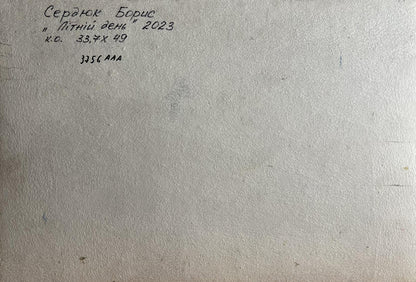 Сердюк Борис
„Літній день" 2023
к.о. 33,7х49
3756 ААА